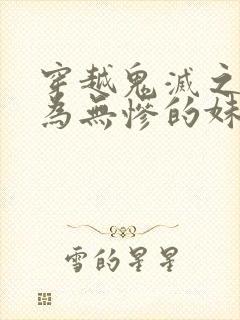 穿越鬼滅之
為無慘的妹
雪的星星